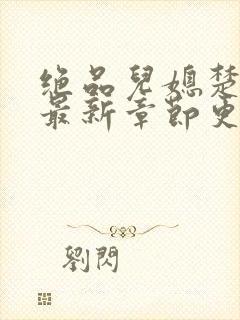 绝品兒媳楚
最新章節更
劉閃